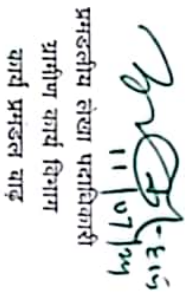 11/07/24
प्रमंडलीय लेखा पदाधिकारी
ग्रामीण कार्य विभाग
कार्य प्रमंडल बाढ़